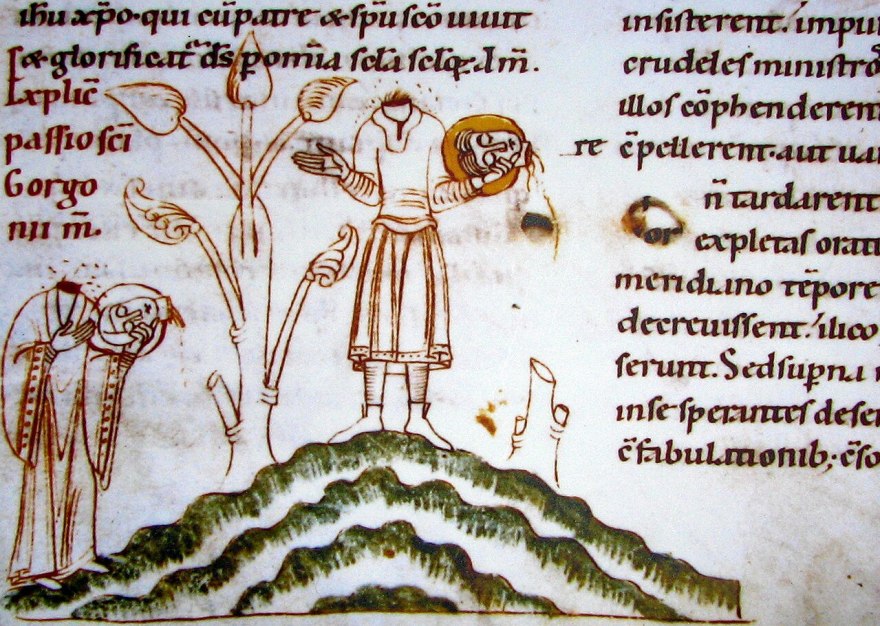 ihu xpo· qui cu patre & spu sco uiuit
& glorificat ds p omia scla sclor. Am.
Explic
passio sci
Gorgo
nii m.
insisterent.
crudeles ministro
illos cophenderent
re
epellerent· aut
n tardarent
or expletas
meridiano tepore
decreuissent: ilico
serunt. Sed supna
in se sperantes
cfabulationib;